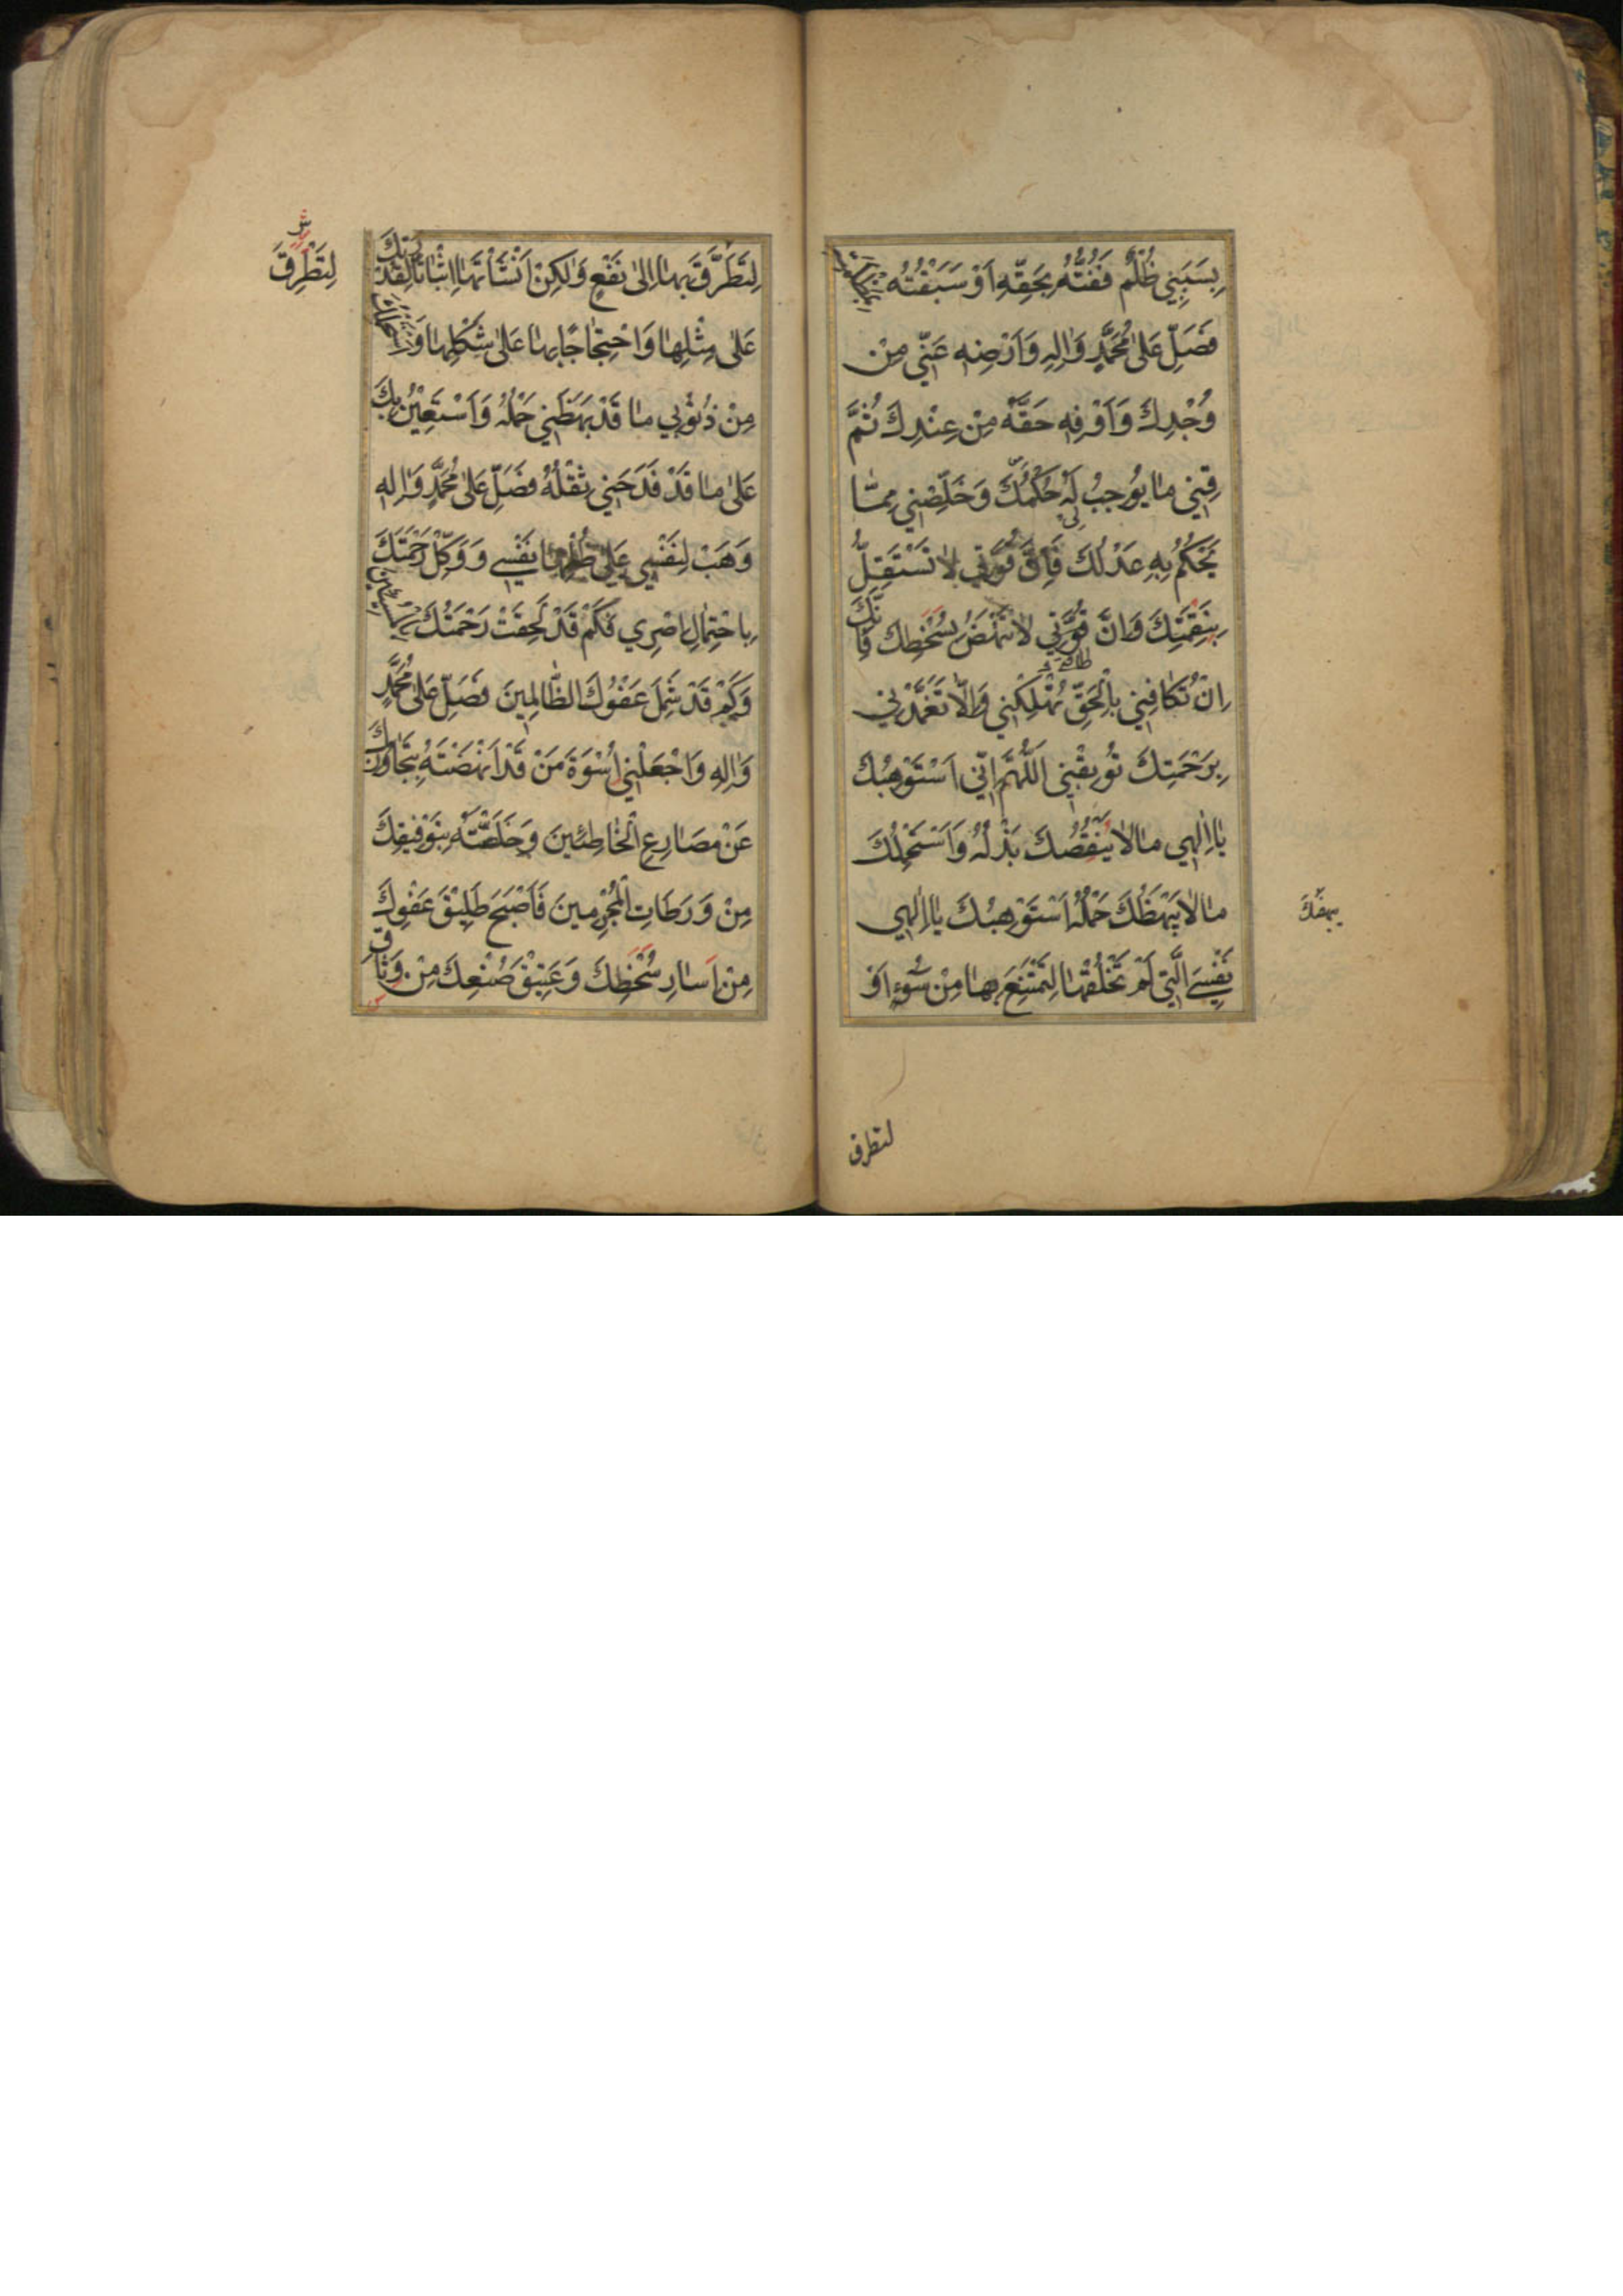 بِسَبَبِي ظُلْمٌ فَفُتُّهُ بِحَقِّهِ اَوْ سَبَقْتُهُ بِمَظْلِمَتِهِ
فَصَلِّ عَلىٰ مُحَمَّدٍ وَاٰلِهِ وَاَرْضِهِ عَنِّي مِنْ
وُجْدِكَ وَاَوْفِهِ حَقَّهُ مِنْ عِنْدِكَ ثُمَّ
قِنِي مٰا يُوجِبُ لَهُ حُكْمُكَ وَخَلِّصْنِي مِمّٰا
يَحْكُمُ بِهِ عَدْلُكَ فَاِنَّ قُوَّتِي لاٰ تَسْتَقِلُّ
بِنِقْمَتِكَ وَاِنَّ قُوَّتِي لاٰ تَنْهَضُ بِسُخْطِكَ فَاِنَّكَ
اِنْ تُكٰافِنِي بِالْحَقِّ تُهْلِكْنِي وَاِلّاٰ تَغَمَّدْنِي
بِرَحْمَتِكَ تُوبِقْنِي اَللّٰهُمَّ اِنِّي اَسْتَوْهِبُكَ
يٰا اِلٰهِي مٰا لاٰ يَنْقُصُكَ بَذْلُهُ وَاَسْتَحْمِلُكَ
مٰا لاٰ يَبْهَظُكَ حَمْلُهُ اَسْتَوْهِبُكَ يٰا اِلٰهِي
نَفْسِيَ الَّتِي لَمْ تَخْلُقْهٰا لِتَمْتَنِعَ بِهٰا مِنْ سُوءٍ اَوْ
لتطرق
لِتَطَرَّقَ بِهٰا اِلىٰ نَفْعٍ وَلٰكِنْ اَنْشَأْتَهٰا اِثْبٰاتًا لِقُدْرَتِكَ
عَلىٰ مِثْلِهٰا وَاحْتِجٰاجًا بِهٰا عَلىٰ شَكْلِهٰا وَ
مِنْ ذُنُوبِي مٰا قَدْ بَهَظَنِي حَمْلُهُ وَاَسْتَعِينُ بِكَ
عَلىٰ مٰا قَدْ فَدَحَنِي ثِقْلُهُ فَصَلِّ عَلىٰ مُحَمَّدٍ وَاٰلِهِ
وَهَبْ لِنَفْسِي عَلىٰ ظُلْمِهٰا نَفْسِي وَوَكِّلْ رَحْمَتَكَ
بِاحْتِمٰالِ اِصْرِي فَكَمْ قَدْ لَحِقَتْ رَحْمَتُكَ بِالْمُسِيئِينَ
وَكَمْ قَدْ شَمِلَ عَفْوُكَ الظّٰالِمِينَ فَصَلِّ عَلىٰ مُحَمَّدٍ
وَاٰلِهِ وَاجْعَلْنِي اُسْوَةَ مَنْ قَدْ اَنْهَضْتَهُ بِتَجٰاوُزِكَ
عَنْ مَصٰارِعِ الْخٰاطِئِينَ وَخَلَّصْتَهُ بِتَوْفِيقِكَ
مِنْ وَرَطٰاتِ الْمُجْرِمِينَ فَاَصْبَحَ طَلِيقَ عَفْوِكَ
مِنْ اِسٰارِ سُخْطِكَ وَعَتِيقَ صُنْعِكَ مِنْ وَثٰاقِ
لِتَطْرِقَ